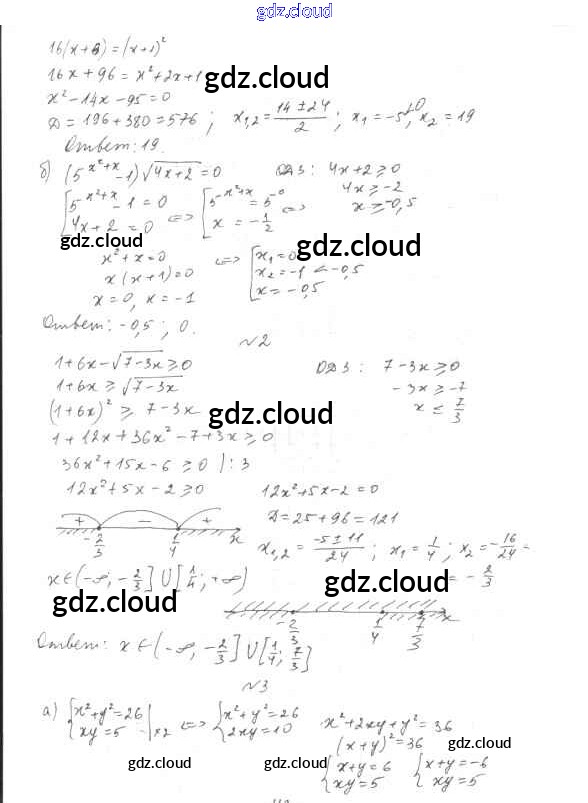 gdz.cloud
16(x+6)=(x+1)²
16x+96=x²+2x+1
gdz.cloud
x²-14x-95=0
D=196+380=576; x₁,₂=(14±24)/2; x₁=-5<0, x₂=19
Ответ: 19.
б) (5^(x²+x)-1)√(4x+2)=0 ОДЗ: 4x+2≥0
[5^(x²+x)-1=0 <=> [5^(x²+x)=5^0 <=> 4x≥-2
[4x+2=0 [x=-1/2 x≥-0,5
gdz.cloud
gdz.cloud
x²+x=0 <=> [x₁=0
x(x+1)=0 [x₂=-1<-0,5
x=0, x=-1 [x=-0,5
Ответ: -0,5; 0.
№2
1+6x-√(7-3x)≥0 ОДЗ: 7-3x≥0
1+6x≥√(7-3x) -3x≥-7
(1+6x)²≥7-3x x≤7/3
gdz.cloud
1+12x+36x²-7+3x≥0
36x²+15x-6≥0 |:3
12x²+5x-2≥0 12x²+5x-2=0
D=25+96=121
+ - +
-2/3 1/4 x
x₁,₂=(-5±11)/24; x₁=1/4; x₂=-16/24=
x∈(-∞;-2/3]∪[1/4;+∞) =-2/3
gdz.cloud
gdz.cloud
-2/3 1/4 7/3 x
Ответ: x∈(-∞;-2/3]∪[1/4;7/3]
№3
а) {x²+y²=26 <=> {x²+y²=26 x²+2xy+y²=36
{xy=5 |×2 {2xy=10 (x+y)²=36
gdz.cloud
{x+y=6 {x+y=-6
{xy=5 {xy=5
gdz.cloud
gdz.cloud
gdz.cloud